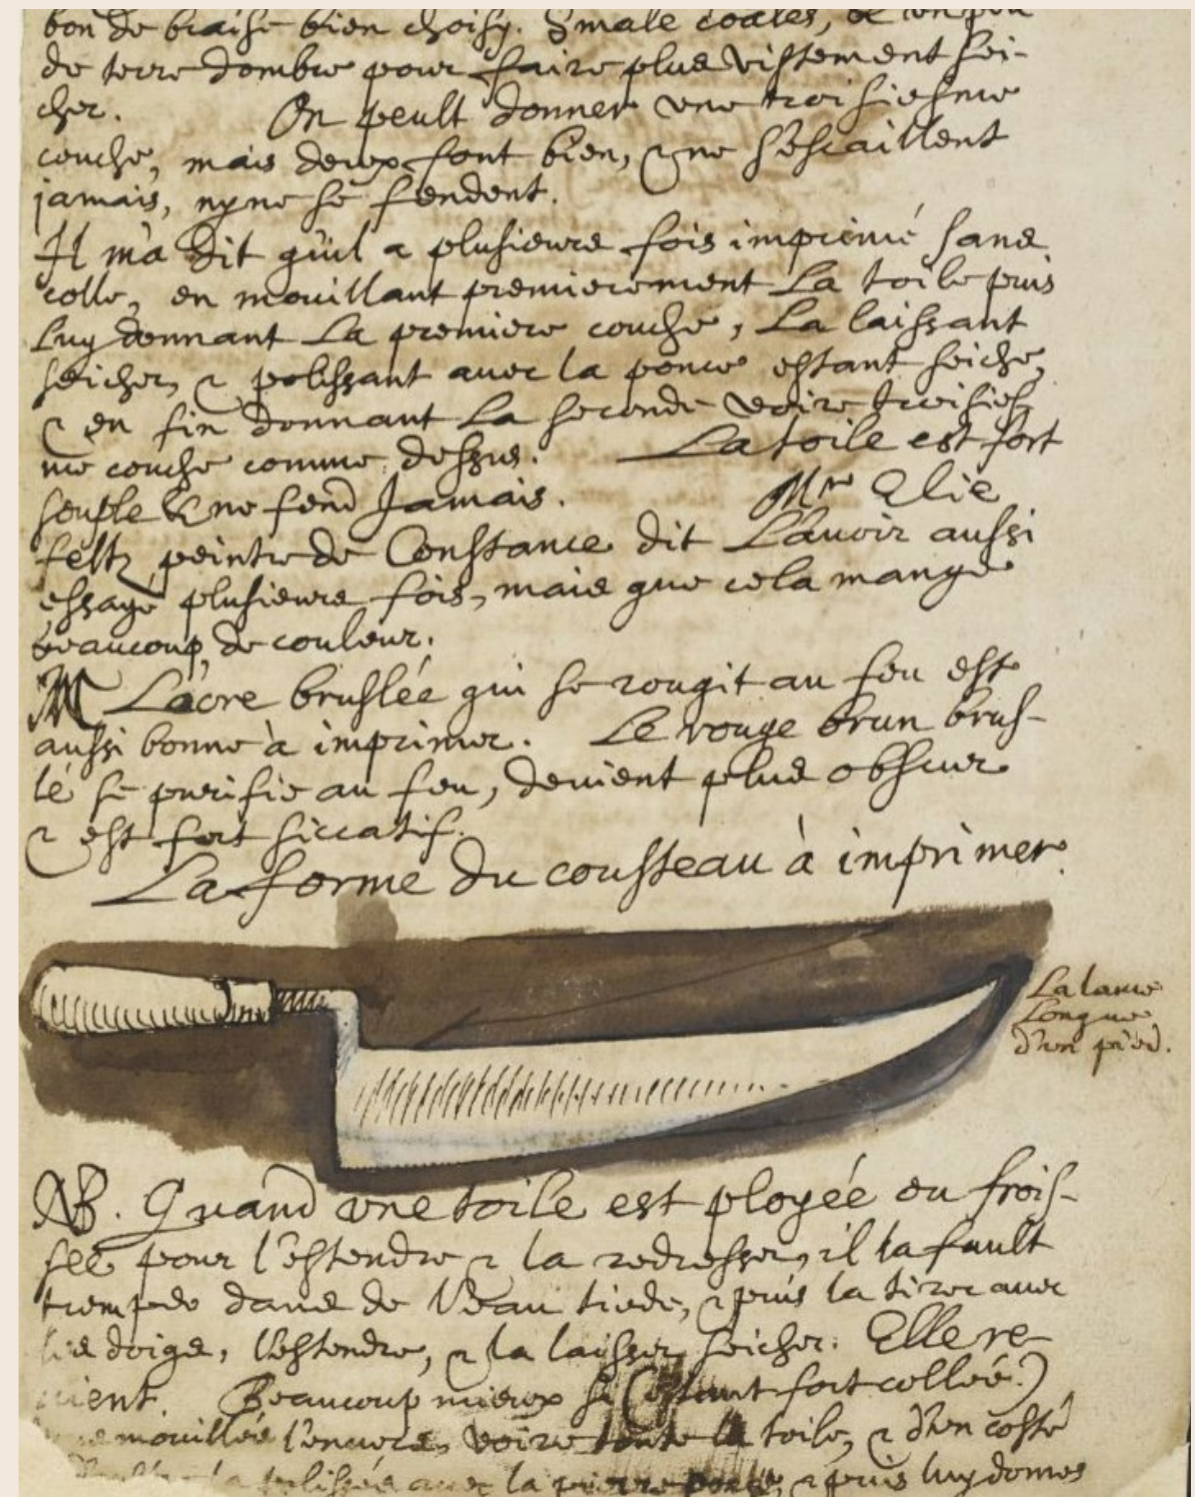 bon de braise bien choisy. Smale coales, & un peu
de terre dombre pour faire plus vistement sei-
cher. On peult donner une troisiesme
couche, mais deux font bien, & ne s'escaillent
jamais, ny ne se fendent.
Il m'a dit qu'il a plusieurs fois imprimé sans
colle, en mouillant premierement La toile puis
luy donnant La premiere couche, La laissant
seicher, & polissant avec la ponce estant seiche,
& en fin donnant La seconde voire troisies-
me couche comme dessus. La toile est fort
souple & ne fend Jamais. Mre Elie
feltz peintre de Constance dit L'avoir aussi
essayé plusieurs fois, mais que cela mange
beaucoup de couleur.
L'ocre bruslée qui se rougit au feu est
aussi bonne à imprimer. Le rouge brun brus-
lé se purifie au feu, devient plus obscur
& est fort siccatif.
La forme du cousteau à imprimer.
La lame
Longue
d'un pied.
NB. Quand une toile est ployée ou frois-
sée pour l'estendre & la redresser, il la fault
tremper dans de l'eau tiede, & puis la tirer avec
les doigs, l'estendre, & la laisser seicher. Elle re-
vient. Beaucoup mieux si (estant fort collée)
mouillée l'envers, voire toute la toile, & d'un costé
avec la pierre ponce, & puis luy donnes